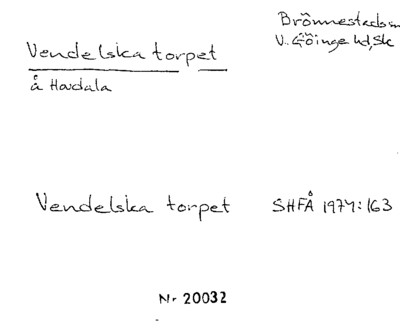 Brönnestads
V. Göinge hd, Sk
Vendelska torpet
å Hovdala
Vendelska torpet SHFÅ 1974:163
Nr 20032